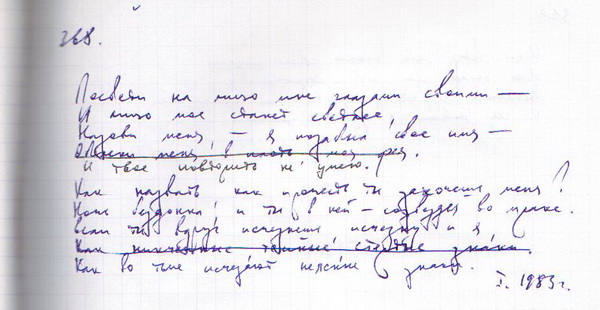 268.
Посвети на лицо мне глазами своими —
И лицо мое станет светлее,
Назови меня, — я позабыл свое имя —
меня, в
И твое повторить не умею.
Как назвать как прочесть ты захочешь меня?
Ночь бездонна! и ты в ней — созвездье во мраке.
Если ты вдруг исчезнешь исчезну и я
Как тайные стертые знаки.
Как во тьме исчезают неясные знаки.
I. 1983 г.